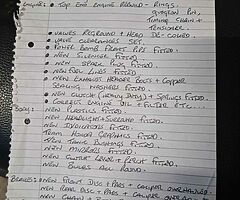 ENGINE: • TOP END ENGINE REBUILD - RINGS,
GUDGEON PIN,
TIMING CHAIN +
TENSIONER
• VALVES REGROUND + HEAD DE-COKED.
• VALVE CLEARANCES SET.
• POWER BOMB FRONT PIPE FITTED.
• NEW SILENCER FITTED.
• NEW SPARK PLUG FITTED.
• NEW FUEL LINES FITTED.
• NEW EXHAUST HEADER BOLTS + COPPER
SEALING WASHERS FITTED.
• NEW CLUTCH (METAL DISCS) + SPRINGS FITTED.
• CORRECT ENGINE OIL + FILTER ETC..
BODY: • NEW PLASTICS FITTED.
• NEW HEADLIGHT + SURROUND FITTED.
• NEW INDICATORS FITTED.
• TEAM HONDA GRAPHICS FITTED.
• NEW TANK BUSHINGS FITTED.
• NEW MIRRORS FITTED.
• NEW CLUTCH LEVER + PERCH FITTED.
• NEW BULBS ALL ROUND.
BRAKES: • NEW FRONT DISC + PADS + CALIPER OVERHAULED.
• NEW REAR DISC + PADS + CALIPER OVERHAULED
• NEW CHAIN +